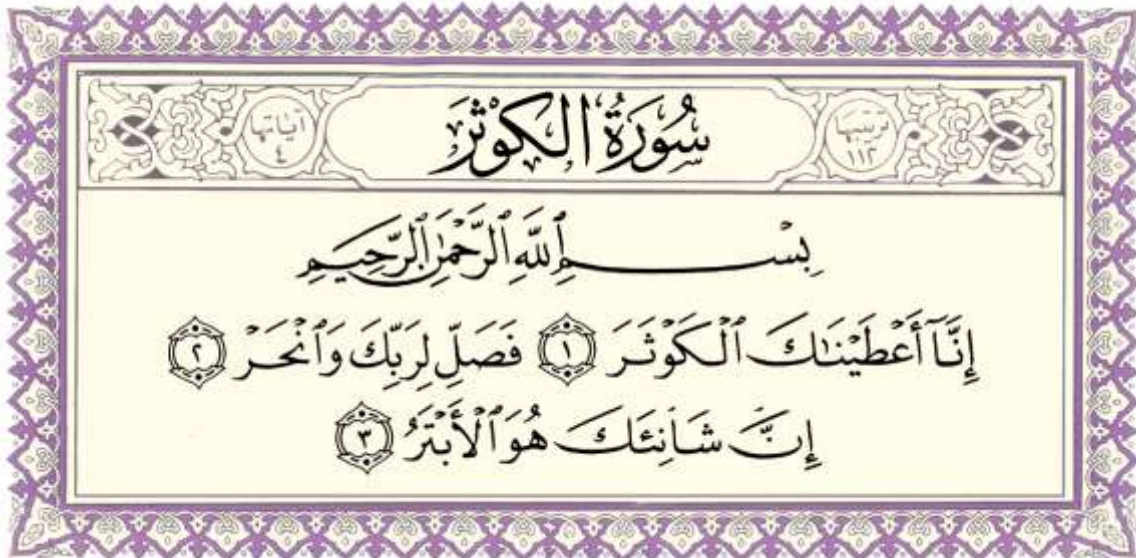 ترتيبها
١١٢
سُورَةُ الكَوْثَر
آياتها
٤
بِسْمِ ٱللَّهِ ٱلرَّحْمَٰنِ ٱلرَّحِيمِ
إِنَّآ أَعْطَيْنَٰكَ ٱلْكَوْثَرَ ١ فَصَلِّ لِرَبِّكَ وَٱنْحَرْ ٢
إِنَّ شَانِئَكَ هُوَ ٱلْأَبْتَرُ ٣